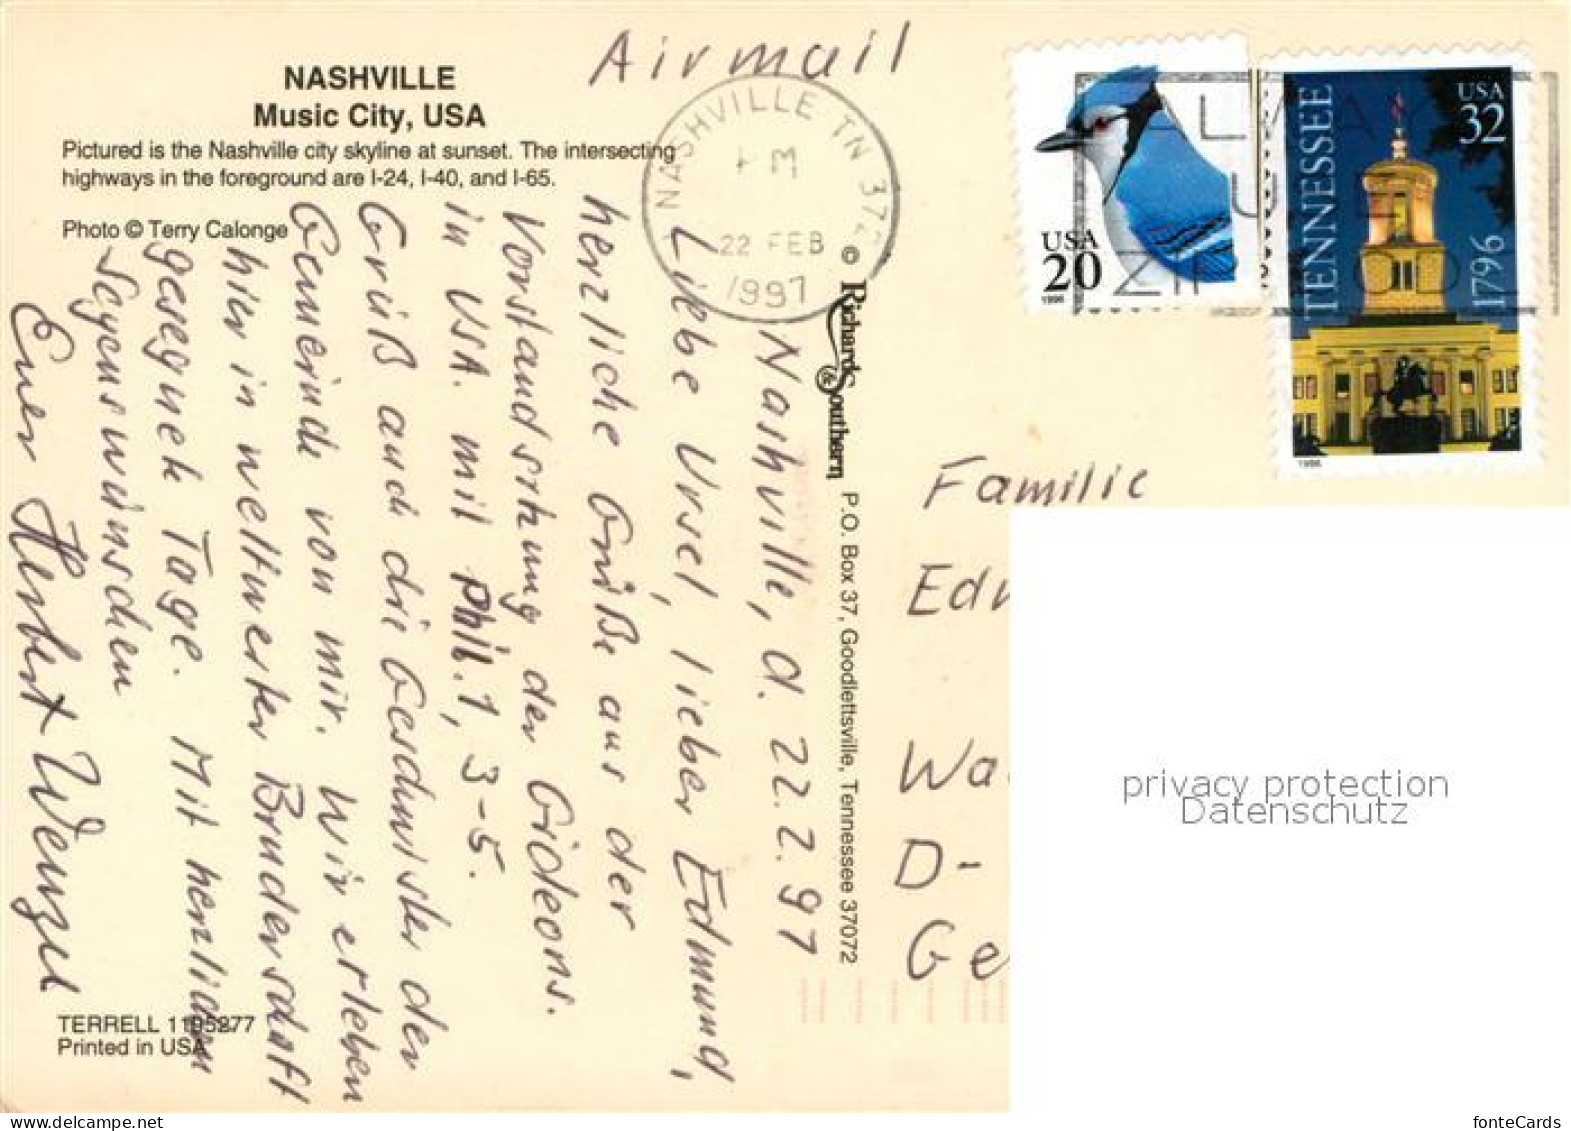 Airmail
NASHVILLE
Music City, USA
Pictured is the Nashville city skyline at sunset. The intersecting
highways in the foreground are I-24, I-40, and I-65.
Photo © Terry Calonge
NASHVILLE TN 372
PM
22 FEB
1997
USA
20
1996
TENNESSEE
USA
32
1796
1996
© Richards & Southern P.O. Box 37, Goodlettsville, Tennessee 37072
Nashville, d. 22.2.97
Liebe Ursel, lieber Edmund,
herzliche Grüße aus der
Vorstandsitzung der Gideons.
in USA. mit Phil. 1, 3-5.
Gruß auch die Geschwister der
Gemeinde von mir. Wir erleben
hier in weltweiter Bruderschaft
gesegnete Tage. Mit herzlichen
Segenswünschen
Euer Herbert Wenzel
Familie
Edm
Wa
D-
Ge
TERRELL 1195277
Printed in USA
privacy protection
Datenschutz
www.delcampe.net
fonteCards